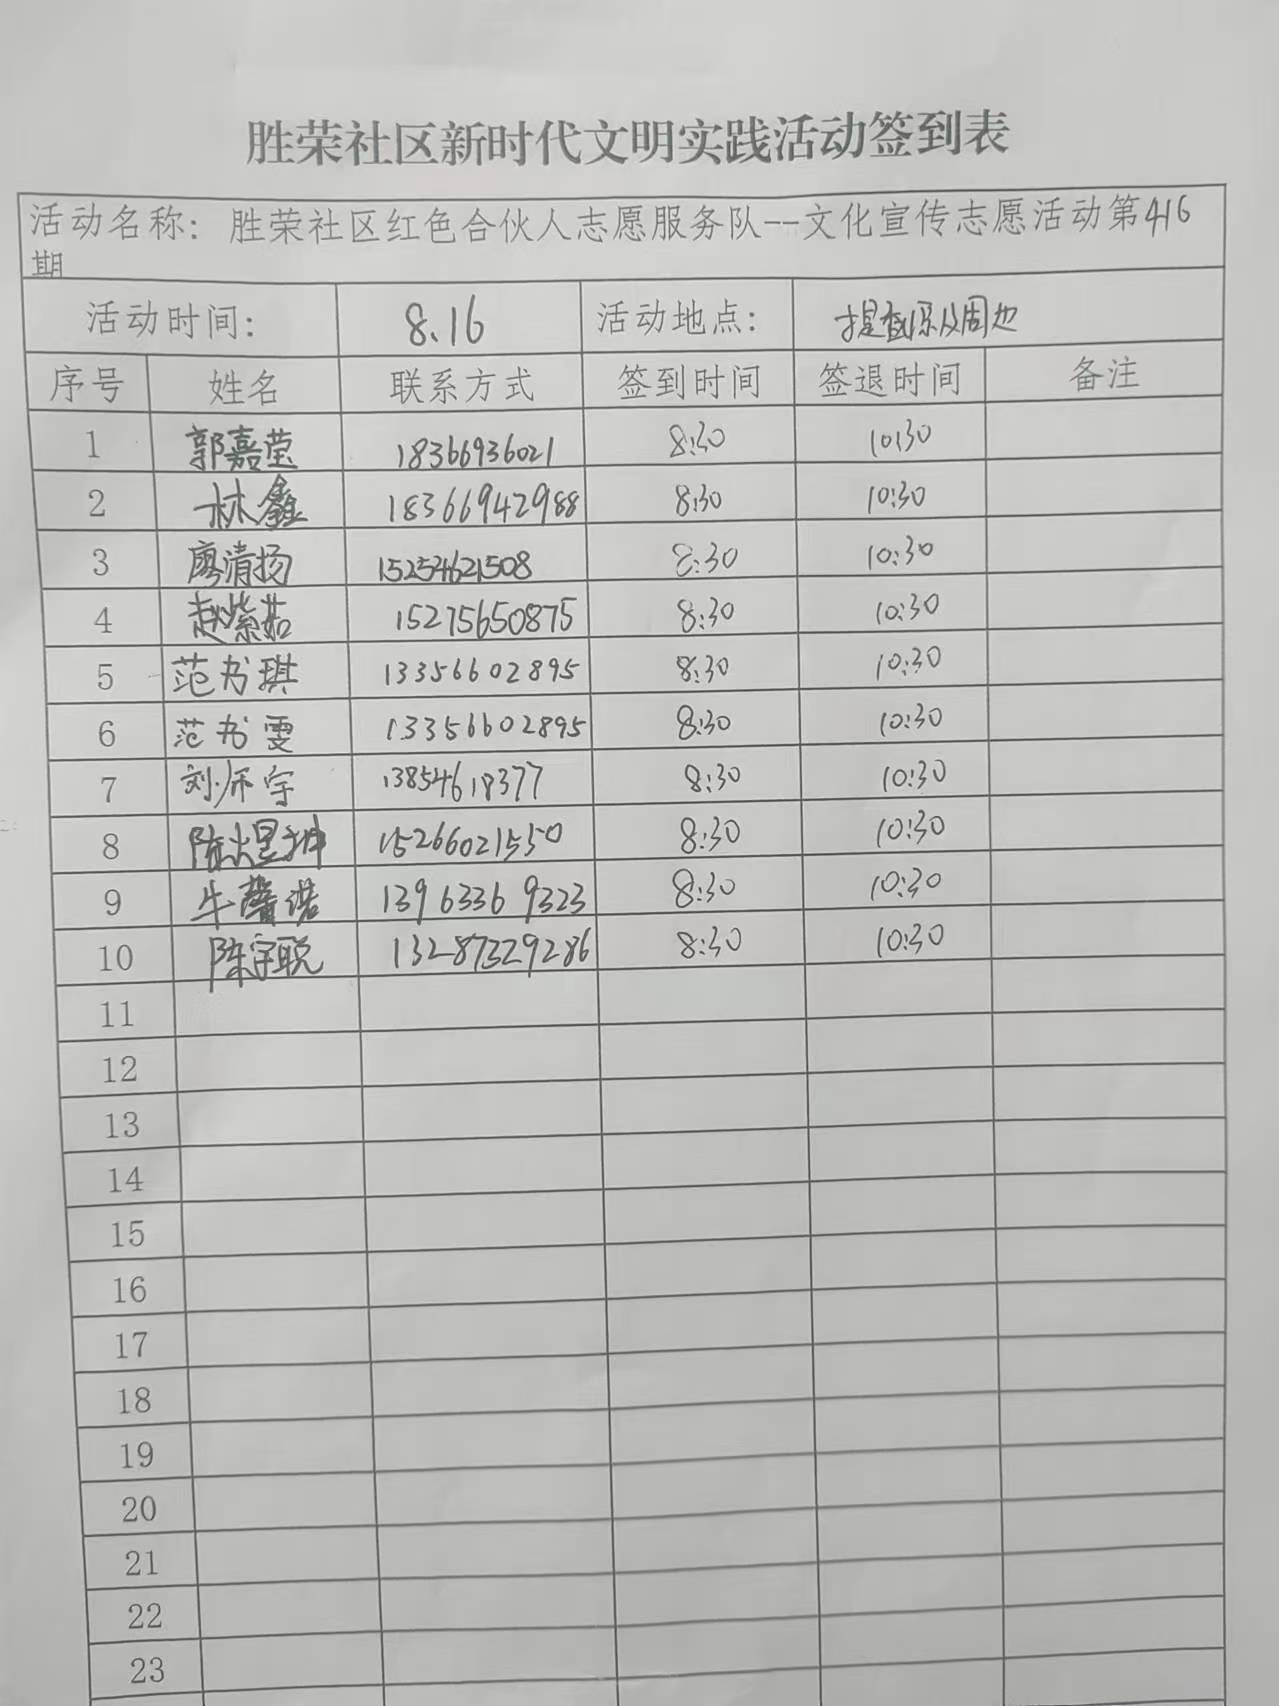 胜荣社区新时代文明实践活动签到表
活动名称：胜荣社区红色合伙人志愿服务队--文化宣传志愿活动第416
期
活动时间： 8.16 活动地点： 及周边
序号 姓名 联系方式 签到时间 签退时间 备注
1 郭嘉莹 18366936021 8:30 10:30
2 林鑫 18366942988 8:30 10:30
3 廖清扬 15254621508 8:30 10:30
4 赵紫茹 15275650875 8:30 10:30
5 范书琪 13356602895 8:30 10:30
6 范书雯 13356602895 8:30 10:30
7 刘师宇 13854618377 8:30 10:30
8 陈煜坤 15266021550 8:30 10:30
9 牛馨诺 13963369323 8:30 10:30
10 陈宇聪 13287329286 8:30 10:30
11
12
13
14
15
16
17
18
19
20
21
22
23